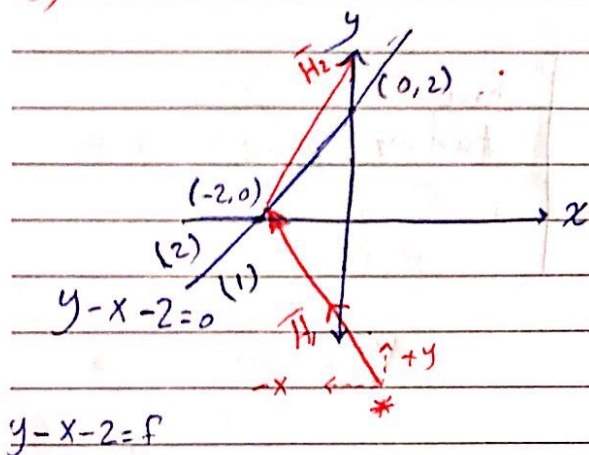 y
H̅₂
(0,2)
(-2,0)
x
(2)
(1)
y-x-2=0
H̅₁
+y
-x
*
y-x-2=f